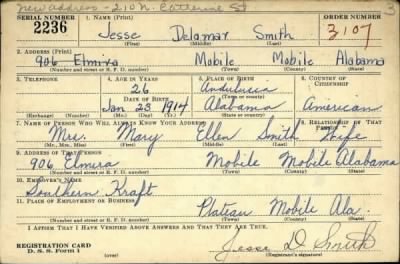 new address - 210 N. Catherine St
SERIAL NUMBER 1. NAME (Print) ORDER NUMBER
2236 Jesse Delamar Smith 3107
(First) (Middle) (Last)
2. ADDRESS (Print)
906 Elmira Mobile Mobile Alabama
(Number and street or R. F. D. number) (Town) (County) (State)
3. TELEPHONE 4. AGE IN YEARS 5. PLACE OF BIRTH 6. COUNTRY OF CITIZENSHIP
26 Andalusia
DATE OF BIRTH (Town or county)
Jan 23 1914 Alabama American
(Exchange) (Number) (Mo.) (Day) (Yr.) (State or country)
7. NAME OF PERSON WHO WILL ALWAYS KNOW YOUR ADDRESS 8. RELATIONSHIP OF THAT PERSON
Mrs. Mary Ellen Smith Wife
(Mr., Mrs., Miss) (First) (Middle) (Last)
9. ADDRESS OF THAT PERSON
906 Elmira Mobile Mobile Alabama
(Number and street or R. F. D. number) (Town) (County) (State)
10. EMPLOYER'S NAME
Southern Kraft
11. PLACE OF EMPLOYMENT OR BUSINESS
Plateau Mobile Ala.
(Number and street or R. F. D. number) (Town) (County) (State)
I AFFIRM THAT I HAVE VERIFIED ABOVE ANSWERS AND THAT THEY ARE TRUE.
REGISTRATION CARD Jesse D Smith
D. S. S. Form 1 (Registrant's signature)